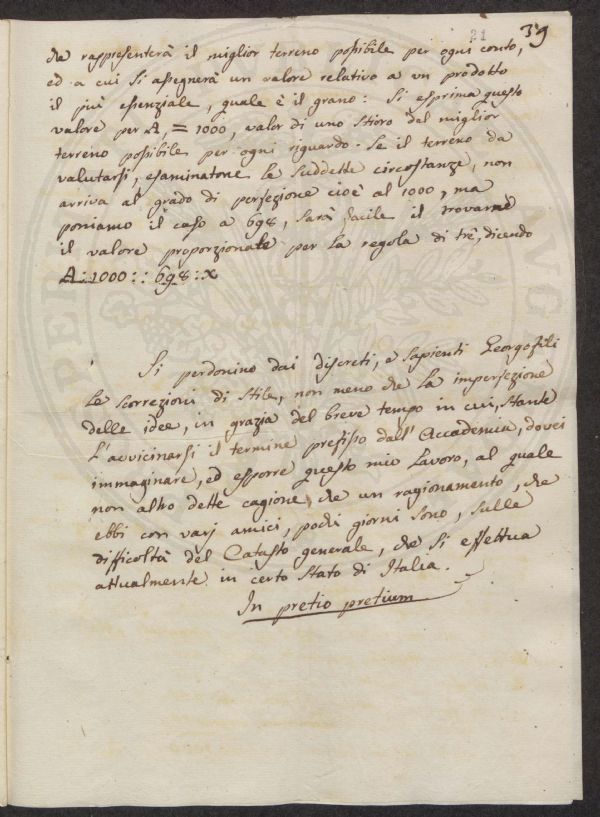 21 39
che rappresenterà il miglior terreno possibile per ogni conto,
ed a cui si assegnerà un valore relativo a un prodotto
il più essenziale, quale è il grano: Si esprima questo
valore per A, = 1000, valor di uno stioro del miglior
terreno possibile per ogni riguardo. Se il terreno da
valutarsi, esaminatone le suddette circostanze, non
arriva al grado di perfezione cioè al 1000, ma
poniamo il caso a 698, sarà facile il trovarne
il valore proporzionale per la regola di trè, dicendo
A : 1000 :: 698 : x
Si perdonino dai discreti, e sapienti Georgofili
le scorrezioni di stile, non meno che la imperfezione
delle idee, in grazia del breve tempo in cui, stante
l'avvicinarsi il termine prefisso dall'Accademia, dovei
immaginare, ed esporre questo mio lavoro, al quale
non altro dette cagione, che un ragionamento, che
ebbi con varj amici, pochi giorni sono, sulle
difficoltà del Catasto generale, che si effettua
attualmente in certo Stato di Italia.
In pretio pretium